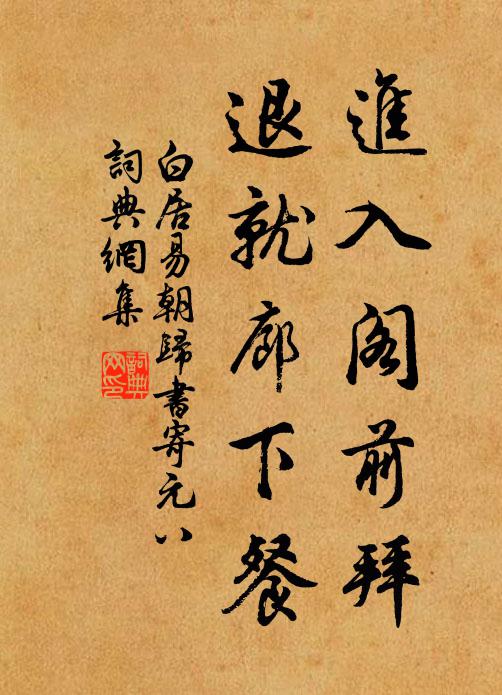 進入阁前拜
退就廊下餐
白居易朝歸書寄元八
詞典網集
詞典
网印